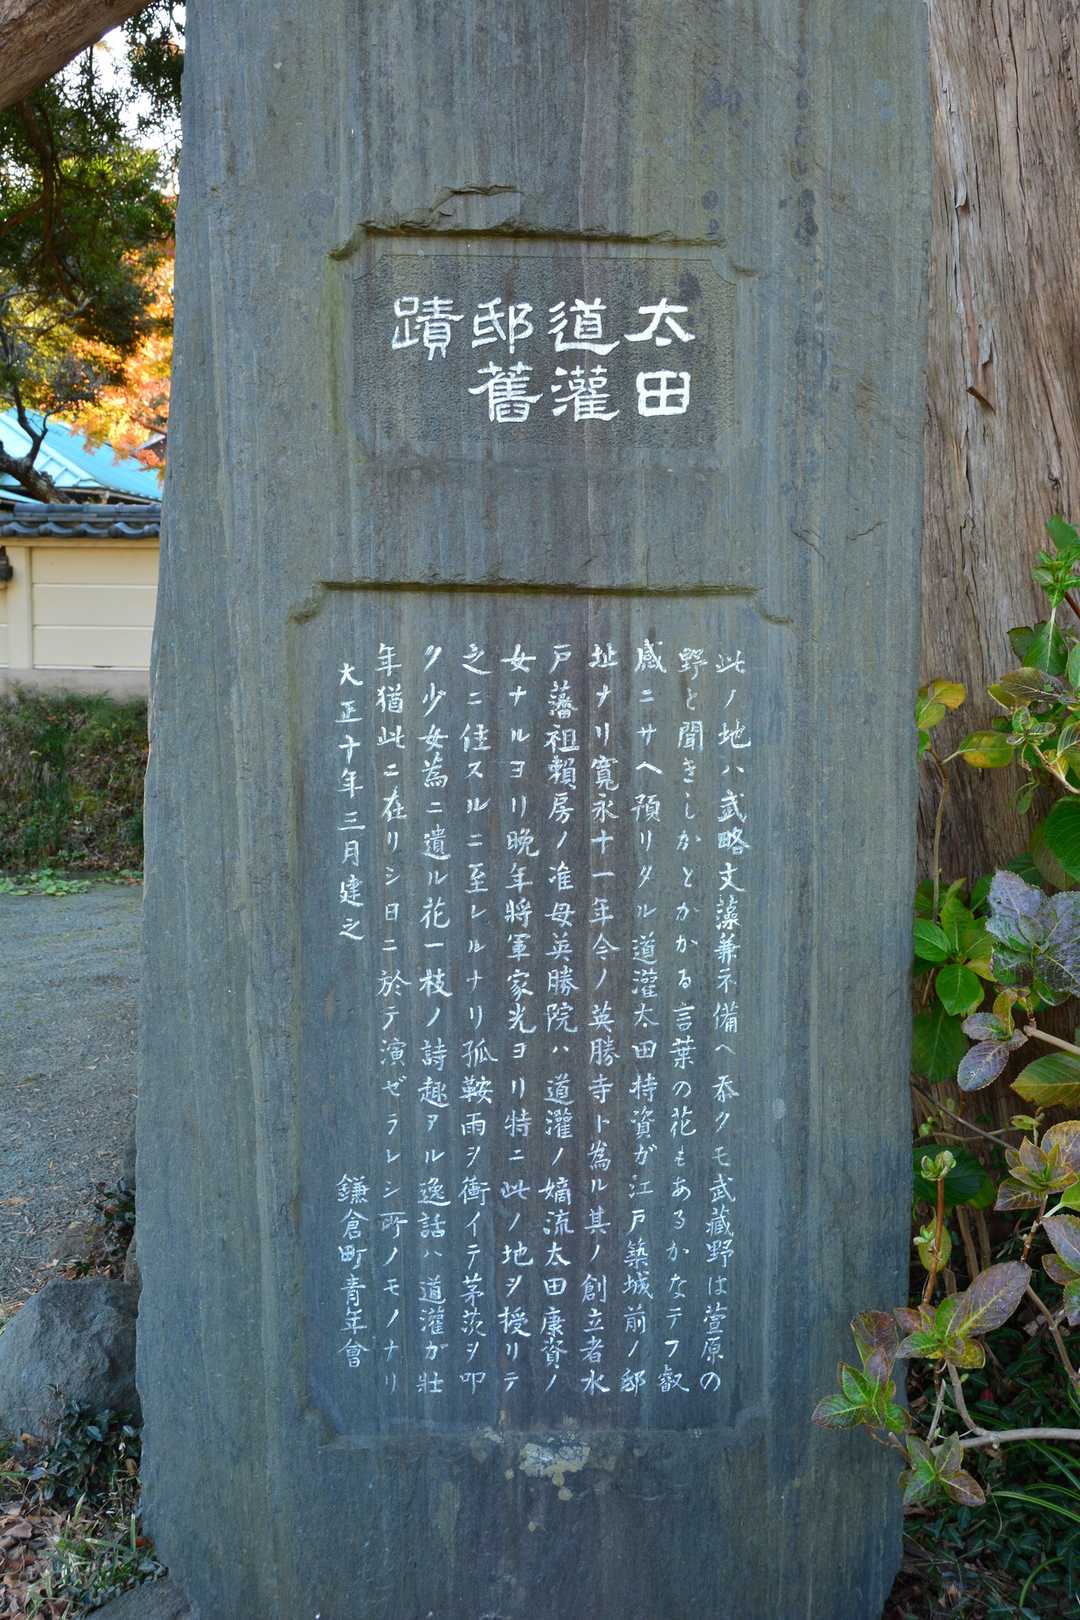 太田
道灌
邸舊
蹟
此ノ地ハ武略文藻兼ネ備ヘ忝クモ武蔵野は萱原の
野と聞きしかとかかる言葉の花もあるかなテフ叡
感ニサヘ預リタル道灌太田持資ガ江戸築城前ノ邸
址ナリ寛永十一年今ノ英勝寺ト為ル其ノ創立者水
戸藩祖頼房ノ准母英勝院ハ道灌ノ嫡流太田康資ノ
女ナルヨリ晩年将軍家光ヨリ特ニ此ノ地ヲ授リテ
之ニ住スルニ至レルナリ孤鞍雨ヲ衝イテ茅茨ヲ叩
ク少女為ニ遺ル花一枝ノ詩趣アル逸話ハ道灌ガ壮
年猶此ニ在リシ日ニ於テ演ゼラレシ所ノモノナリ
大正十年三月建之
鎌倉町青年會